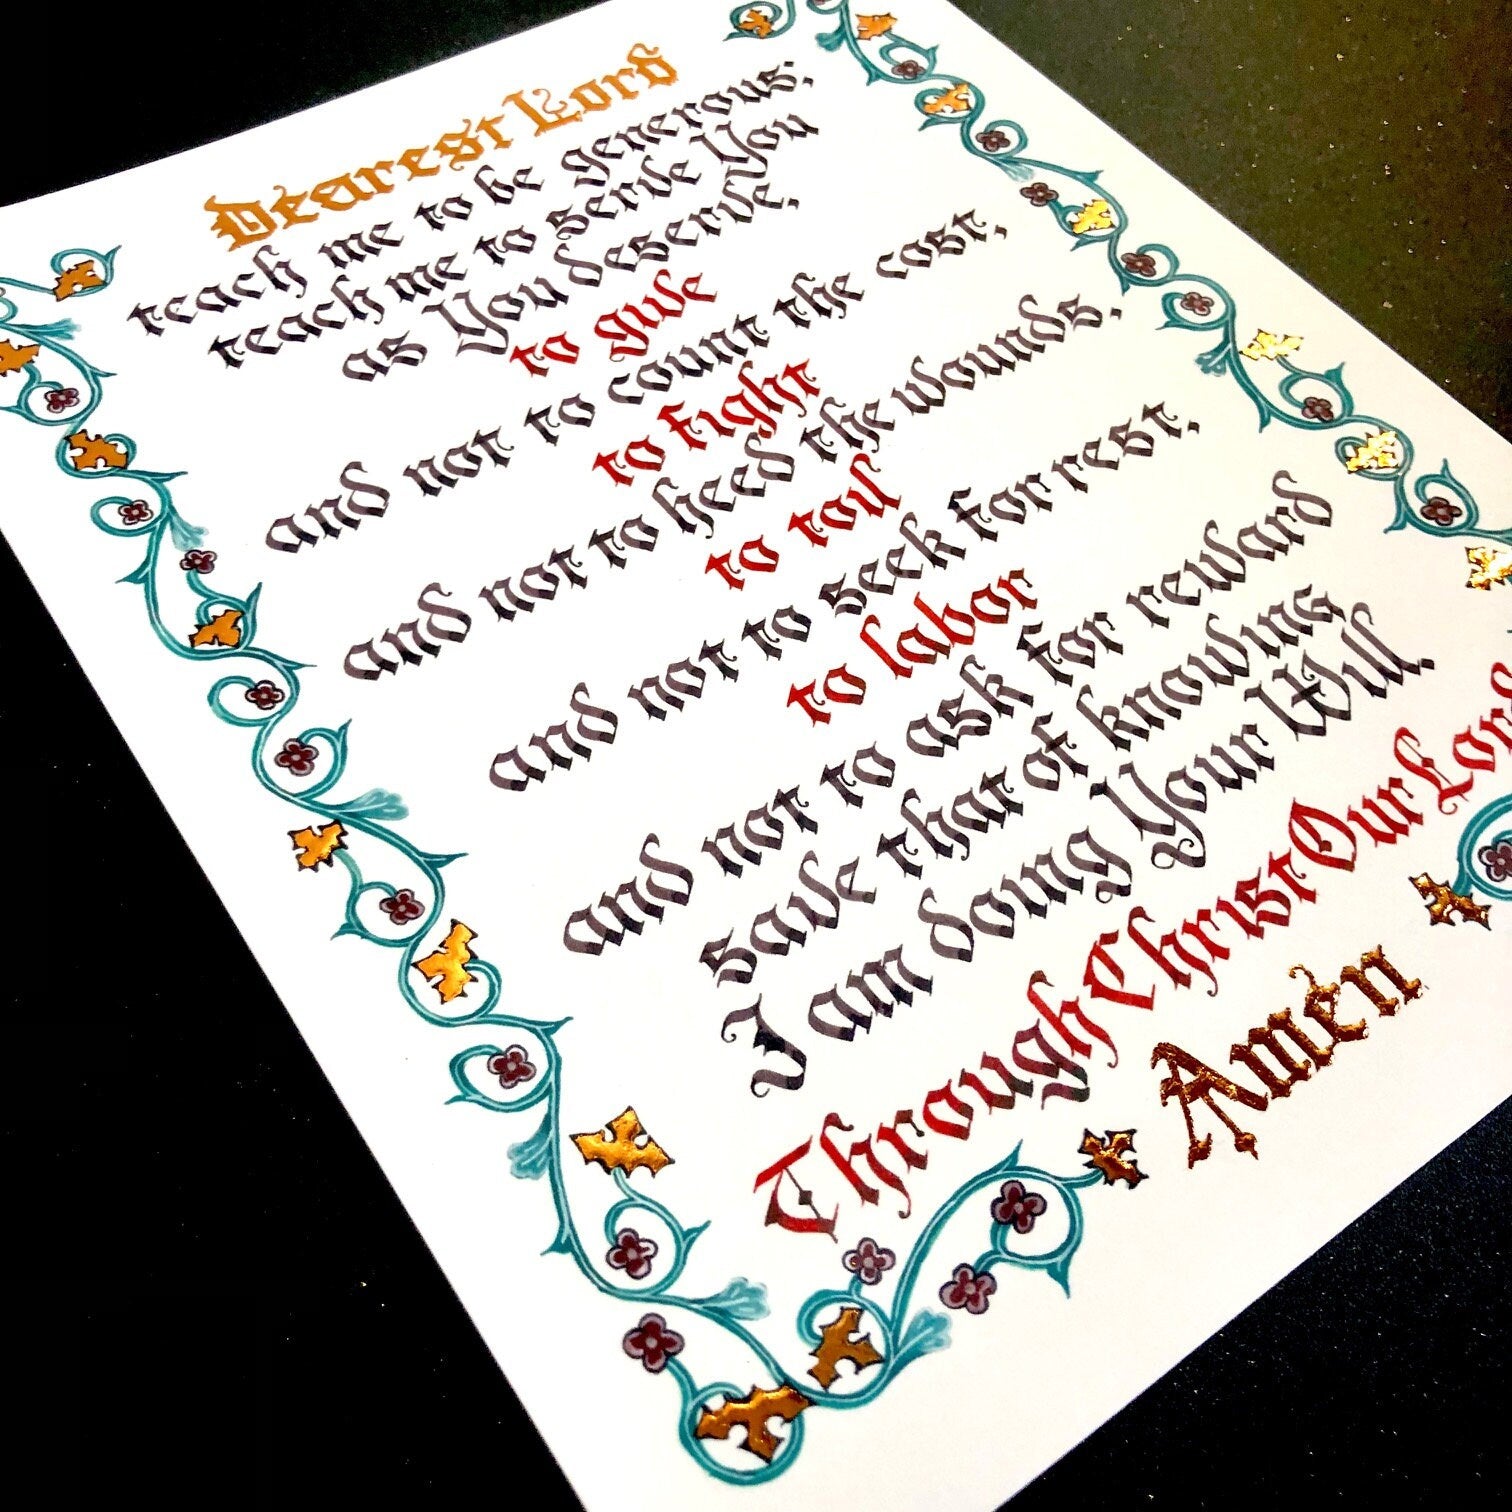 Dearest Lord
teach me to be generous;
teach me to serve You
as You deserve;
to give
and not to count the cost,
to fight
and not to heed the wounds,
to toil
and not to seek for rest,
to labor
and not to ask for reward
save that of knowing
I am doing Your Will.
Through Christ Our Lord
Amen